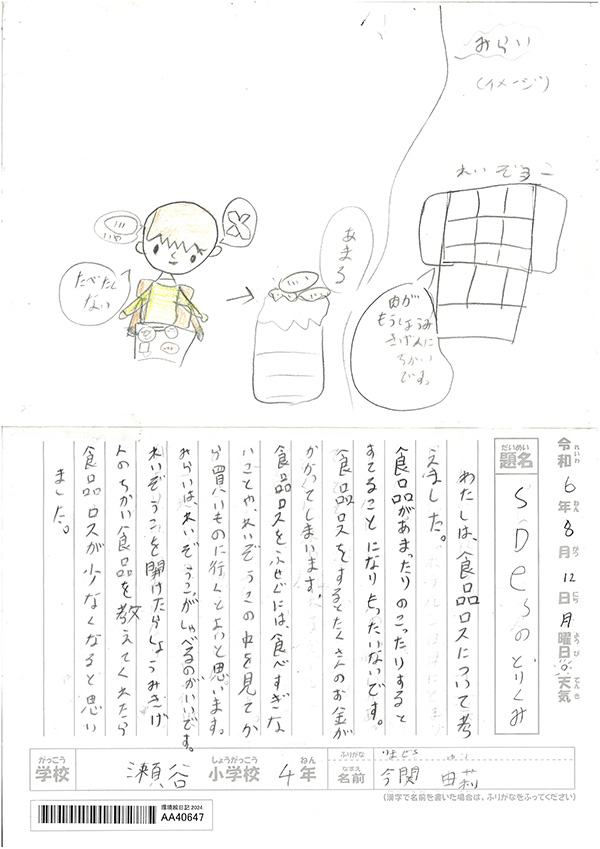 みらい
(イメージ)
れいぞうこ
いや
たべたくない
あまる
肉が
もうしょうみ
きげんに
ちかい
です。
令和6年8月12日月曜日
れいわ
ねん
がつ
にち
ようび
てんき
天気
だいめい
題名
SDGsのとりくみ
わたしは、食品ロスについて考
えました。
食品があまったりのこったりすると
すてることになりもったいないです。
食品ロスをするとたくさんのお金が
かかってしまいます。
食品ロスをふせぐには、食べすぎな
いことや、れいぞうこの中を見てか
ら買いものに行くとよいと思います。
みらいは、れいぞうこがしゃべるのがいいです。
れいぞうこを開けたらしょうみきげ
んのちかい食品を教えてくれたら
食品ロスが少なくなると思い
ました。
がっこう
学校
瀬谷
しょうがっこう
小学校
4年
ねん
ふりがな
なまえ
名前
今関 由莉
(漢字で名前を書いた場合は、ふりがなをふってください)
環境絵日記2024
AA40647